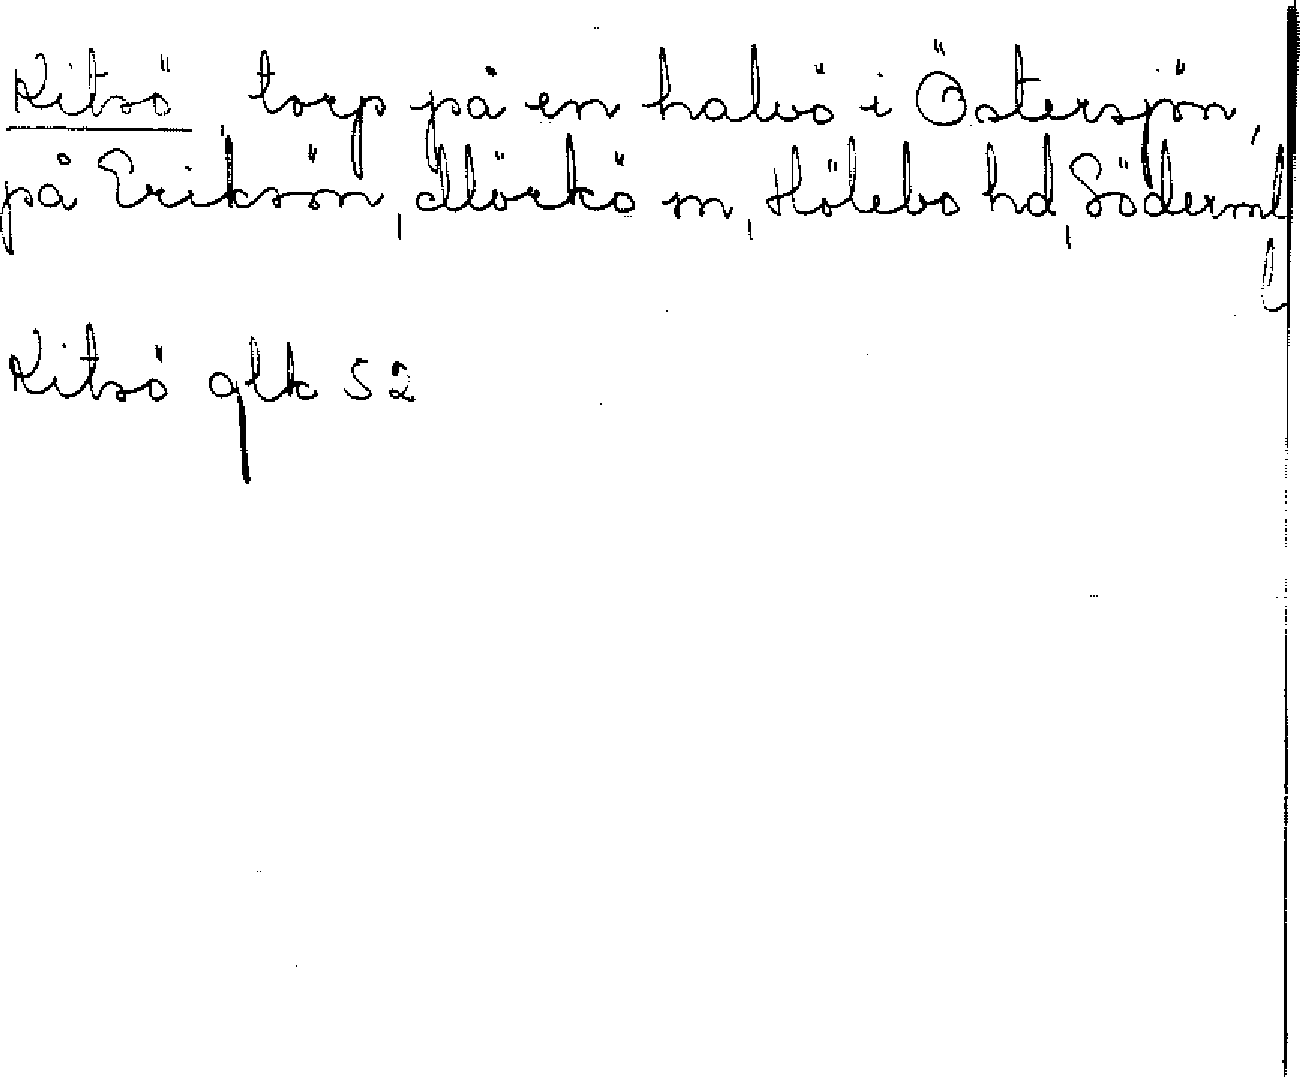 Kitsö, torp på en halvö i Östersjön,
på Eriksön, Mörkö sn, Hölebo hd, Söderml
Kitsö glk 52